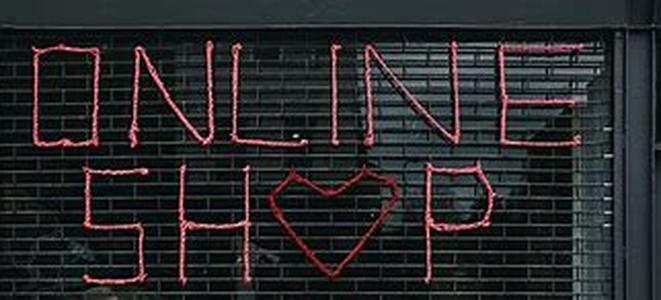 ONLINE
SH♥P